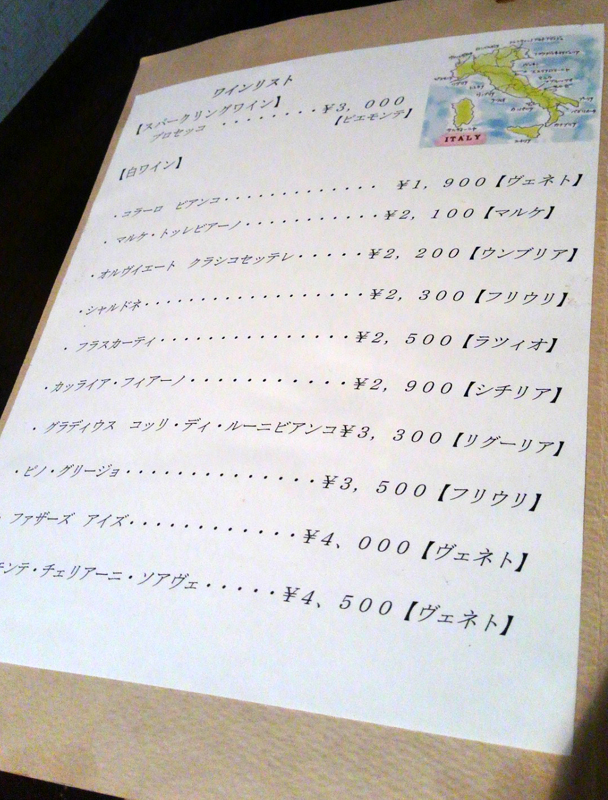 ワインリスト
【スパークリングワイン】
プロセッコ ・・・・・・・・¥3,000
【ピエモンテ】
ITALY
【白ワイン】
・コラーロ ビアンコ・・・・・・・・・・・・・ ¥1,900【ヴェネト】
・マルケ・トッレビアーノ・・・・・・・・・・・¥2,100【マルケ】
・オルヴィエート クラシコセッテレ・・・・・¥2,200【ウンブリア】
・シャルドネ・・・・・・・・・・・・・・・・・・¥2,300【フリウリ】
・フラスカーティ・・・・・・・・・・・・・・・¥2,500【ラツィオ】
・カッライア・フィアーノ・・・・・・・・・・・¥2,900【シチリア】
・グラディウス コッリ・ディ・ルーニビアンコ¥3,300【リグーリア】
・ピノ・グリージョ・・・・・・・・・・・・・・¥3,500【フリウリ】
・ファザーズ アイズ・・・・・・・・・・・・¥4、000【ヴェネト】
モンテ・チェリアーニ・ソアヴェ・・・・・¥4、500【ヴェネト】